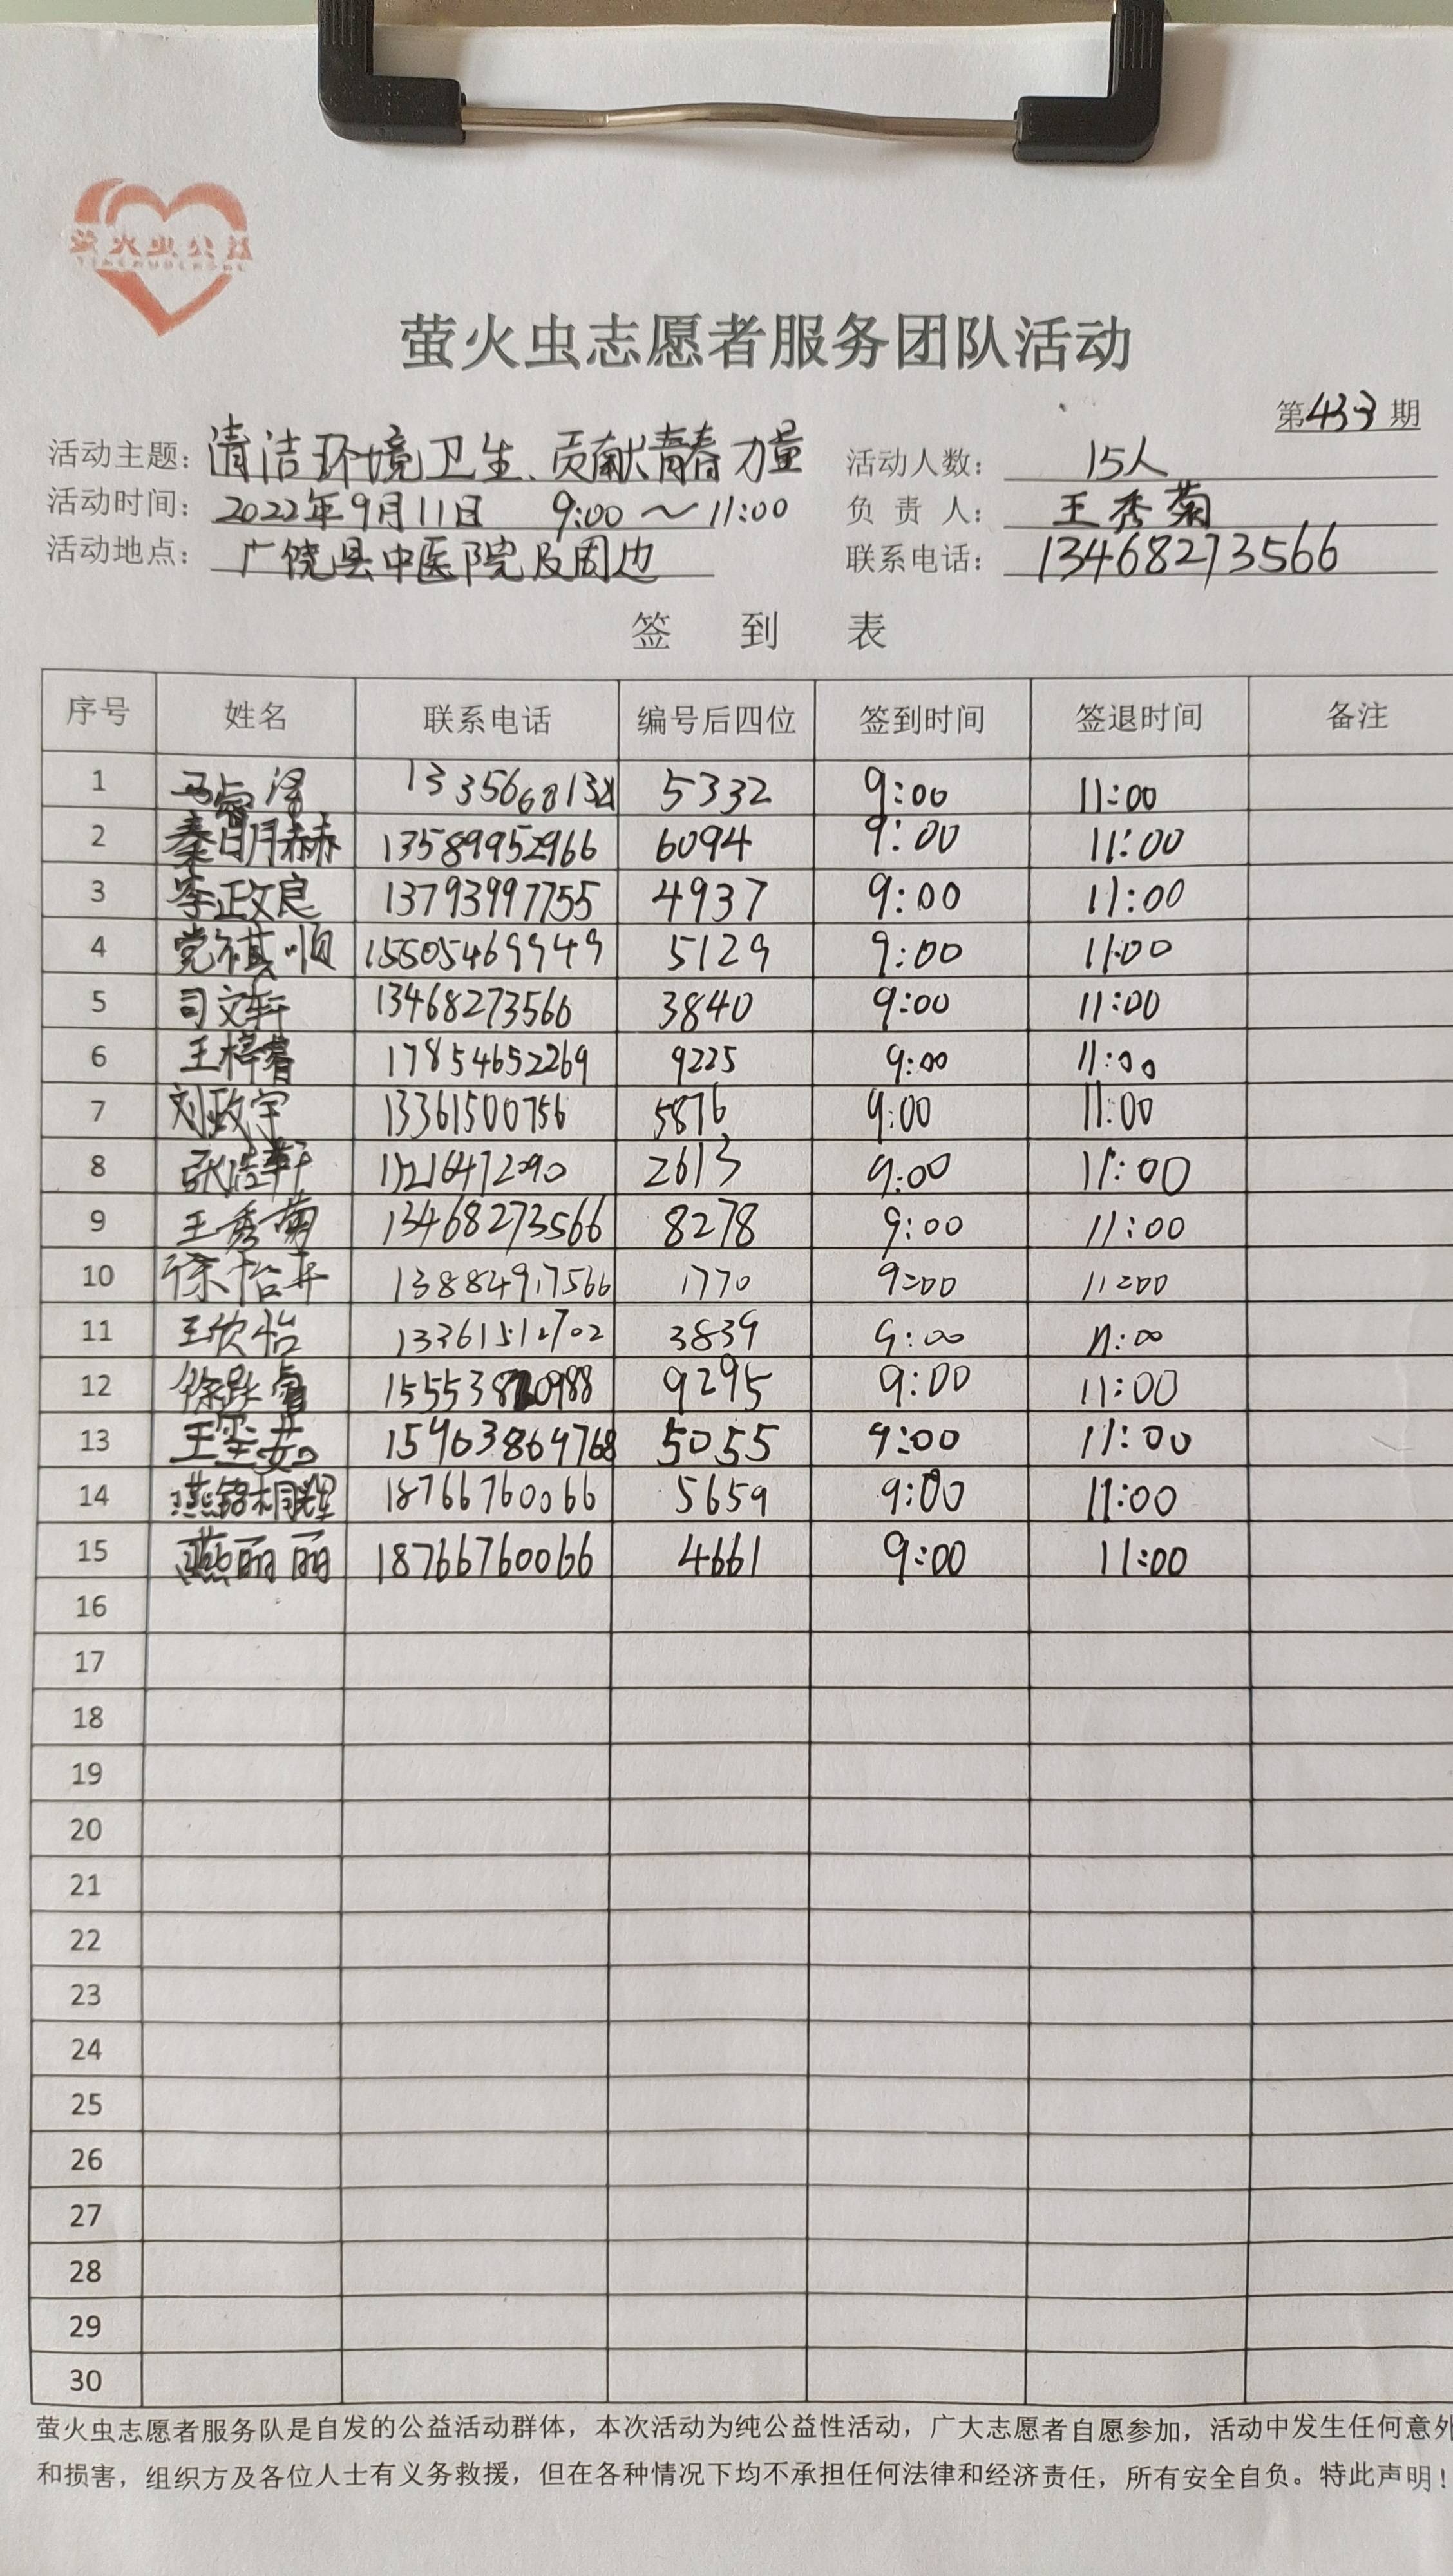 萤火虫公益
萤火虫志愿者服务团队活动
第433期
活动主题：清洁环境卫生、贡献青春力量 活动人数：15人
活动时间：2022年9月11日 9:00～11:00 负责人：王秀菊
活动地点：广饶县中医院及周边 联系电话：13468273566
签到表
序号 姓名 联系电话 编号后四位 签到时间 签退时间 备注
1 马睿泽 5332 9:00 11:00
2 秦明赫 13589952966 6094 9:00 11:00
3 李政良 13793997755 4937 9:00 11:00
4 党祺顺 15505469949 5129 9:00 11:00
5 司文轩 13468273566 3840 9:00 11:00
6 王梓睿 17854652269 9225 9:00 11:00
7 刘政宇 13361500756 5876 9:00 11:00
8 张浩轩 2613 9:00 11:00
9 王秀菊 13468273566 8278 9:00 11:00
10 徐怡 13884917566 1770 9:00 11:00
11 王欣怡 13361512702 3839 9:00 11:00
12 徐 睿 9295 9:00 11:00
13 王 茹 15963869768 5055 9:00 11:00
14 燕铭桐辉 18766760066 5659 9:00 11:00
15 燕丽丽 18766760066 4661 9:00 11:00
16
17
18
19
20
21
22
23
24
25
26
27
28
29
30
萤火虫志愿者服务队是自发的公益活动群体，本次活动为纯公益性活动，广大志愿者自愿参加，活动中发生任何意外
和损害，组织方及各位人士有义务救援，但在各种情况下均不承担任何法律和经济责任，所有安全自负。特此声明！